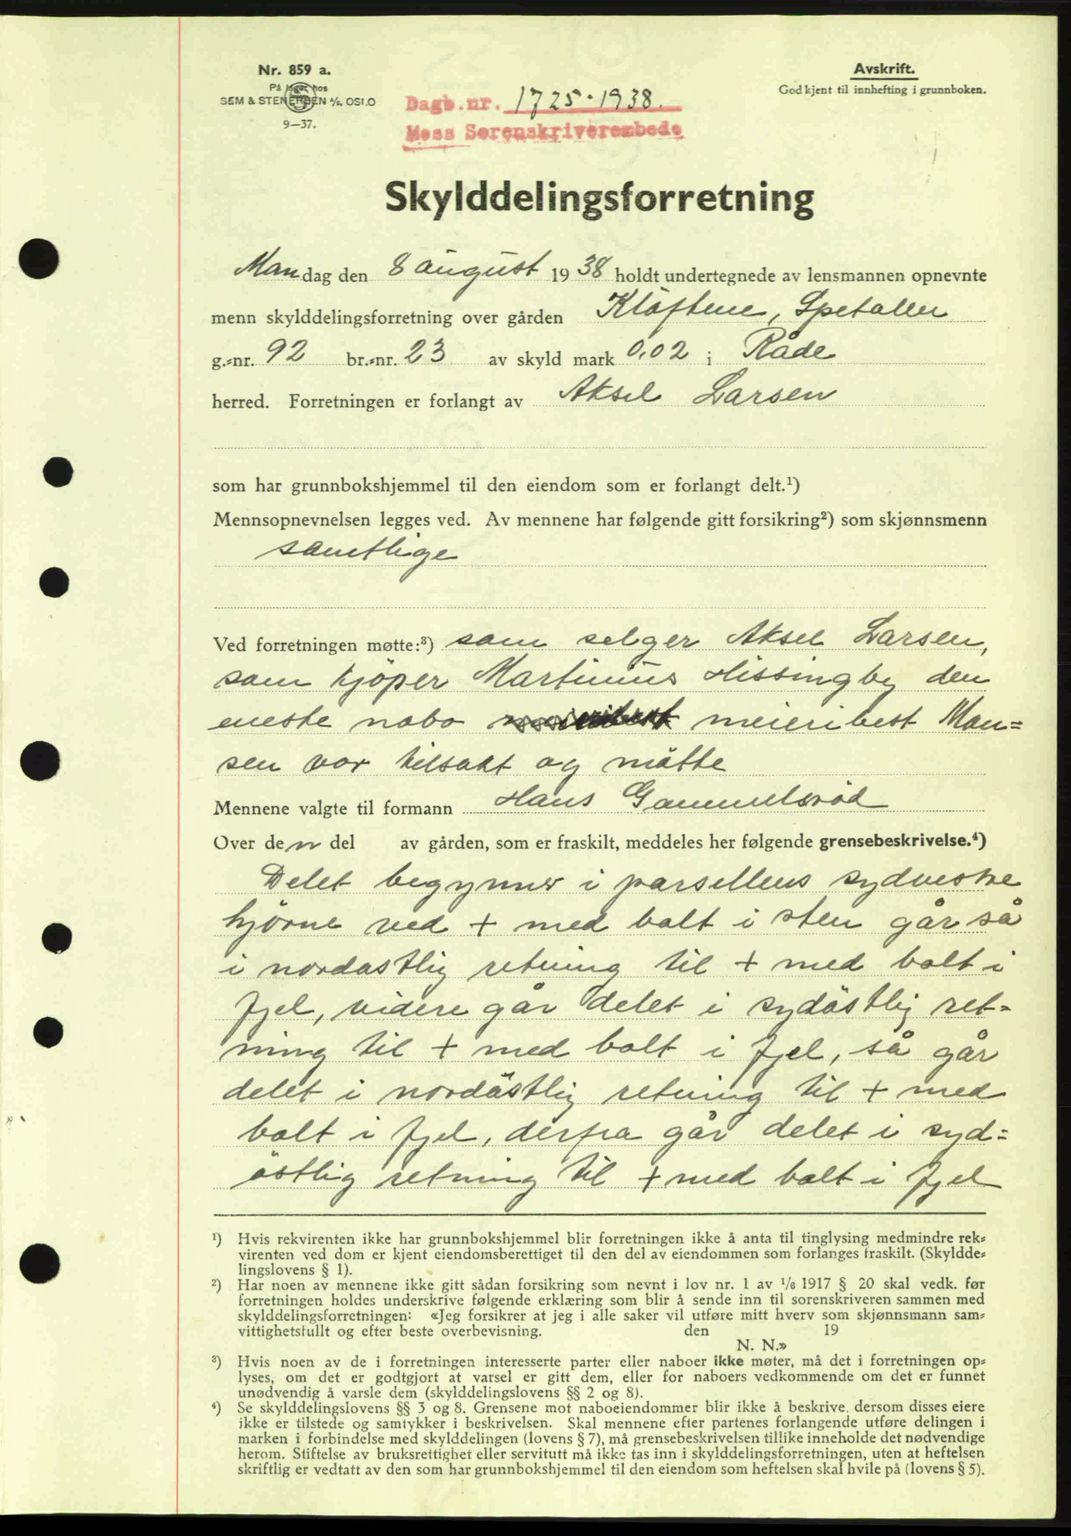 Nr. 859 a.
På lager hos
SEM & STENERSEN A/S, OSLO
9—37.
Avskrift.
Godkjent til innhefting i grunnboken.
Dagb.nr. 1725-1938.
Moss Sorenskriverembede
Skylddelingsforretning
Mandag den 8 august 1938 holdt undertegnede av lensmannen opnevnte
menn skylddelingsforretning over gården Kløftene, Spetalen
g.-nr. 92 br.-nr. 23 av skyld mark 0,02 i Råde
herred. Forretningen er forlangt av Aksel Larsen
som har grunnbokshjemmel til den eiendom som er forlangt delt.¹)
Mennsopnevnelsen legges ved. Av mennene har følgende gitt forsikring²) som skjønnsmenn
samtlige
Ved forretningen møtte:³) som selger Aksel Larsen,
som kjöper Martinius Hissingby den
eneste nabo meieribest Han=
sen var tilsakt og mötte
Mennene valgte til formann Hans Gammelsröd
Over den del av gården, som er fraskilt, meddeles her følgende grensebeskrivelse.⁴)
Delet begynner i parsellens sydvestre
hjörne ved + med bolt i sten går så
i nordöstlig retning til + med bolt i
fjel, videre går delet i sydöstlig ret-
ning til + med bolt i fjel, så går
delet i nordöstlig retning til + med
bolt i fjel, derfra går delet i syd=
östlig retning til + med bolt i fjel
¹) Hvis rekvirenten ikke har grunnbokshjemmel blir forretningen ikke å anta til tinglysing medmindre rek-
virenten ved dom er kjent eiendomsberettiget til den del av eiendommen som forlanges fraskilt. (Skyldde-
lingslovens § 1).
²) Har noen av mennene ikke gitt sådan forsikring som nevnt i lov nr. 1 av ¹/₆ 1917 § 20 skal vedk. før
forretningen holdes underskrive følgende erklæring som blir å sende inn til sorenskriveren sammen med
skylddelingsforretningen: «Jeg forsikrer at jeg i alle saker vil utføre mitt hverv som skjønnsmann sam-
vittighetsfullt og efter beste overbevisning. den 19
N. N.»
³) Hvis noen av de i forretningen interesserte parter eller naboer ikke møter, må det i forretningen op-
lyses, om det er godtgjort at varsel er gitt dem, eller for naboers vedkommende om det er funnet
unødvendig å varsle dem (skylddelingslovens §§ 2 og 8).
⁴) Se skylddelingslovens §§ 3 og 8. Grensene mot naboeiendommer blir ikke å beskrive, dersom disses eiere
ikke er tilstede og samtykker i beskrivelsen. Skal mennene efter partenes forlangende utføre delingen i
marken i forbindelse med skylddelingen (lovens § 7), må grensebeskrivelsen tillike inneholde det nødvendige
herom. Stiftelse av bruksrettighet eller servitutt må ikke tas inn i skylddelingsforretningen, uten at heftelsen
skriftlig er vedtatt av den som har grunnbokshjemmel til den eiendom som heftelsen skal hvile på (lovens § 5).